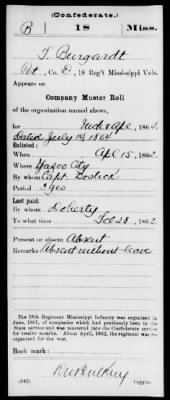 (Confederate.)
B 18 Miss.
T. Burgardt
Pvt, Co. E, 18 Reg't Mississippi Vols.
Appears on
Company Muster Roll
of the organization named above,
for Mch & Apl, 1864.
dated July 14, 1864
Enlisted:
When Apl 15, 1862.
Where Yazoo City
By whom Capt. Bostick
Period 3 Yrs
Last paid:
By whom Doherty
To what time Feb 28, 1862.
Present or absent Absent
Remarks: Absent without leave
The 18th Regiment Mississippi Infantry was organized in June, 1861, of companies which had previously been in the State service and was mustered into the Confederate service for twelve months. About April, 1862, the regiment was re-organized for the war.
Book mark:
(642) Copyist.